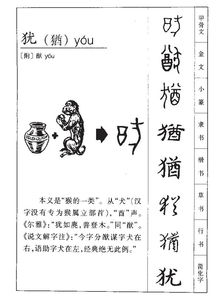 犹（猶）yóu
［附］猷 yóu
本义是“猴的一类”。从“犬”（汉
字没有专为猴属立部首），“酋”声。
《尔雅》：“犹如麂，善登木。”同“猷”。
《说文解字注》：“今字分猷谋字犬在
右，语助字犬在左，经典绝无此例。”
甲骨文
金文
小篆
隶书
楷书
草书
行书
简化字
猶
猶
犹